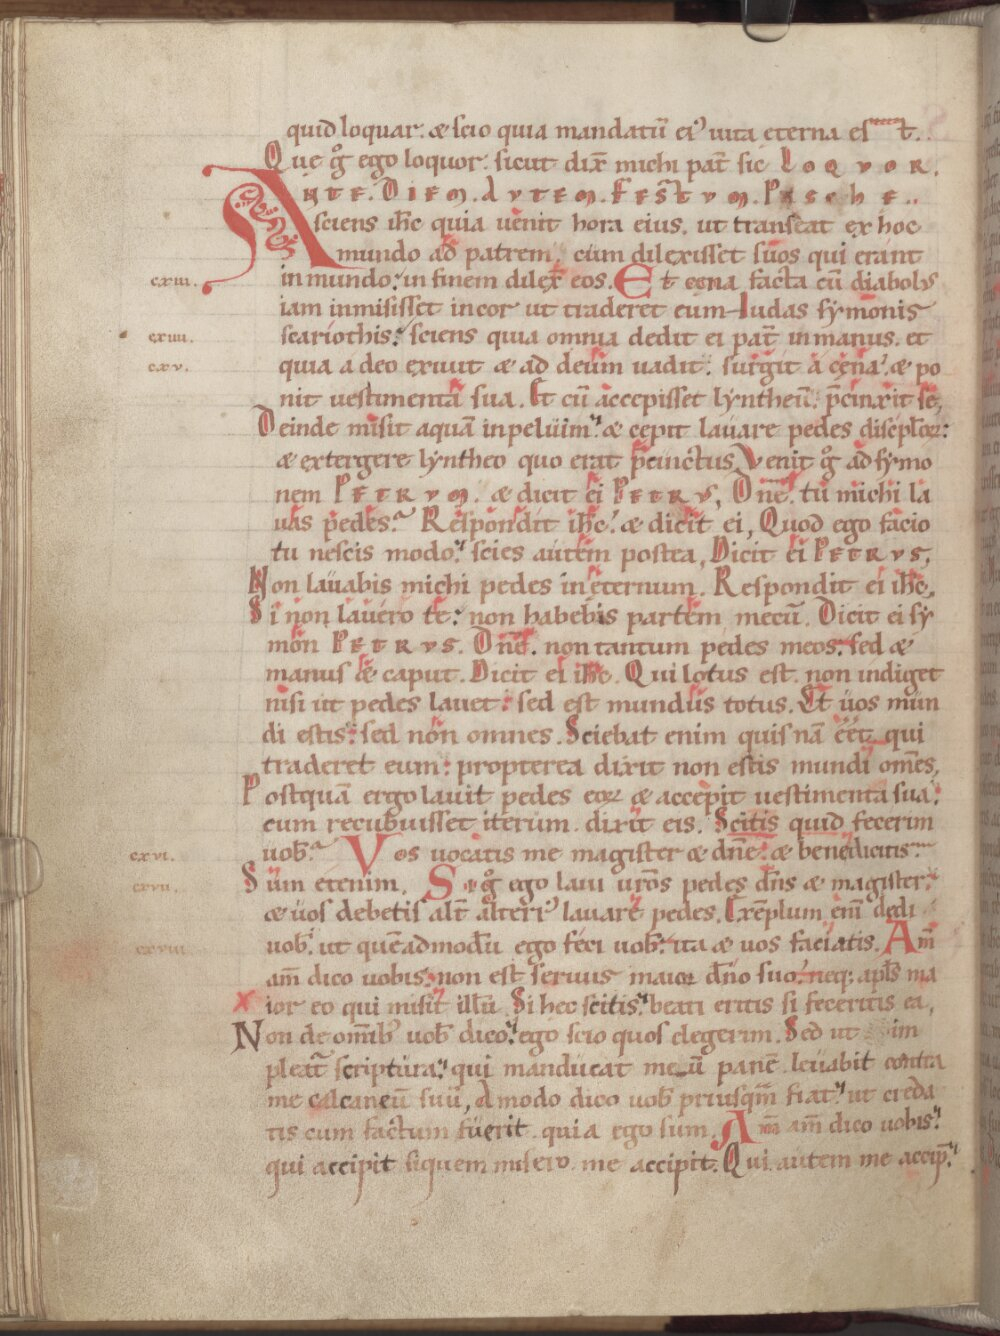 quid loquar. & scio quia mandatū ei᾽ uita eterna est.
Que g̊ ego loquor. sicut dix̄ michi pat̄ sic LOQVOR.
ANTE. DIEM. AVTEM. FESTVM. PASCHE..
sciens ih̄c quia uenit hora eius. ut transeat ex hoc
mundo ad patrem. cum dilexisset suos qui erant
cxiii. in mundo. in finem dilex̄ eos. Et cena facta cū diabolus
iam inmisisset incor ut traderet eum Iudas symonis
cxiiii. scariothis. sciens quia omnia dedit ei pat̄ inmanus. et
cxv. quia a deo exiuit & ad deum uadit. surgit a cena. & po
nit uestimenta sua. Et cū accepisset lyntheū. p̄cinxit se,
Deinde misit aquā inpeluim. & cepit lauare pedes discipl̄oꝝ:
& extergere lyntheo quo erat p̄cinctus, Venit g̊ ad symo
nem PETRVM. & dicit ei PETRVS, Dn̄e. tu michi la
uas pedes. Respondit ih̄c. & dicit ei, Quod ego facio
tu nescis modo. scies autem postea, Dicit ei PETRVS,
Non lauabis michi pedes ineternum. Respondit ei ih̄c,
Si non lauero te. non habebis partem mecū. Dicit ei sy
mon PETRVS. Dn̄e. non tantum pedes meos. sed &
manus & caput. Dicit ei ih̄c. Qui lotus est. non indiget
nisi ut pedes lauet. sed est mundus totus. Et uos mun
di estis. sed non omnes. Sciebat enim quisnā eēt qui
traderet eum. propterea dixit non estis mundi om̄es,
Postquā ergo lauit pedes eoꝝ & accepit uestimenta sua.
cum recubuisset iterum. dixit eis. Scitis quid fecerim
cxvi. uob̄. Vos uocatis me magister & dn̄e. & benedicitis.
cxvii. Sum etenim. Si g̊ ego laui ur̄os pedes dn̄s & magister.
& uos debetis alt̄ alteri᾽ lauare pedes. Exēplum eni̅ dedi
cxviii uob̄. ut quēadmodū ego feci uob̄. ita & uos faciatis. Am̄
am̄ dico uobis. non est seruus maior dn̄o suo. neq; apl̄s ma
ior eo qui misit illū. Si hec scitis. beati eritis si feceritis ea,
Non de om̄ib᾽ uob̄ dico. ego scio quos elegerim. Sed ut im
pleat̄ scriptura. qui manducat mecū panē. leuabit contra
me calcaneū suū, Amodo dico uob̄ priusqm̄ fiat. ut creda
tis cum factum fuerit. quia ego sum. Am̄ am̄ dico uobis.
qui accipit siquem misero. me accipit. Qui autem me accip̄.